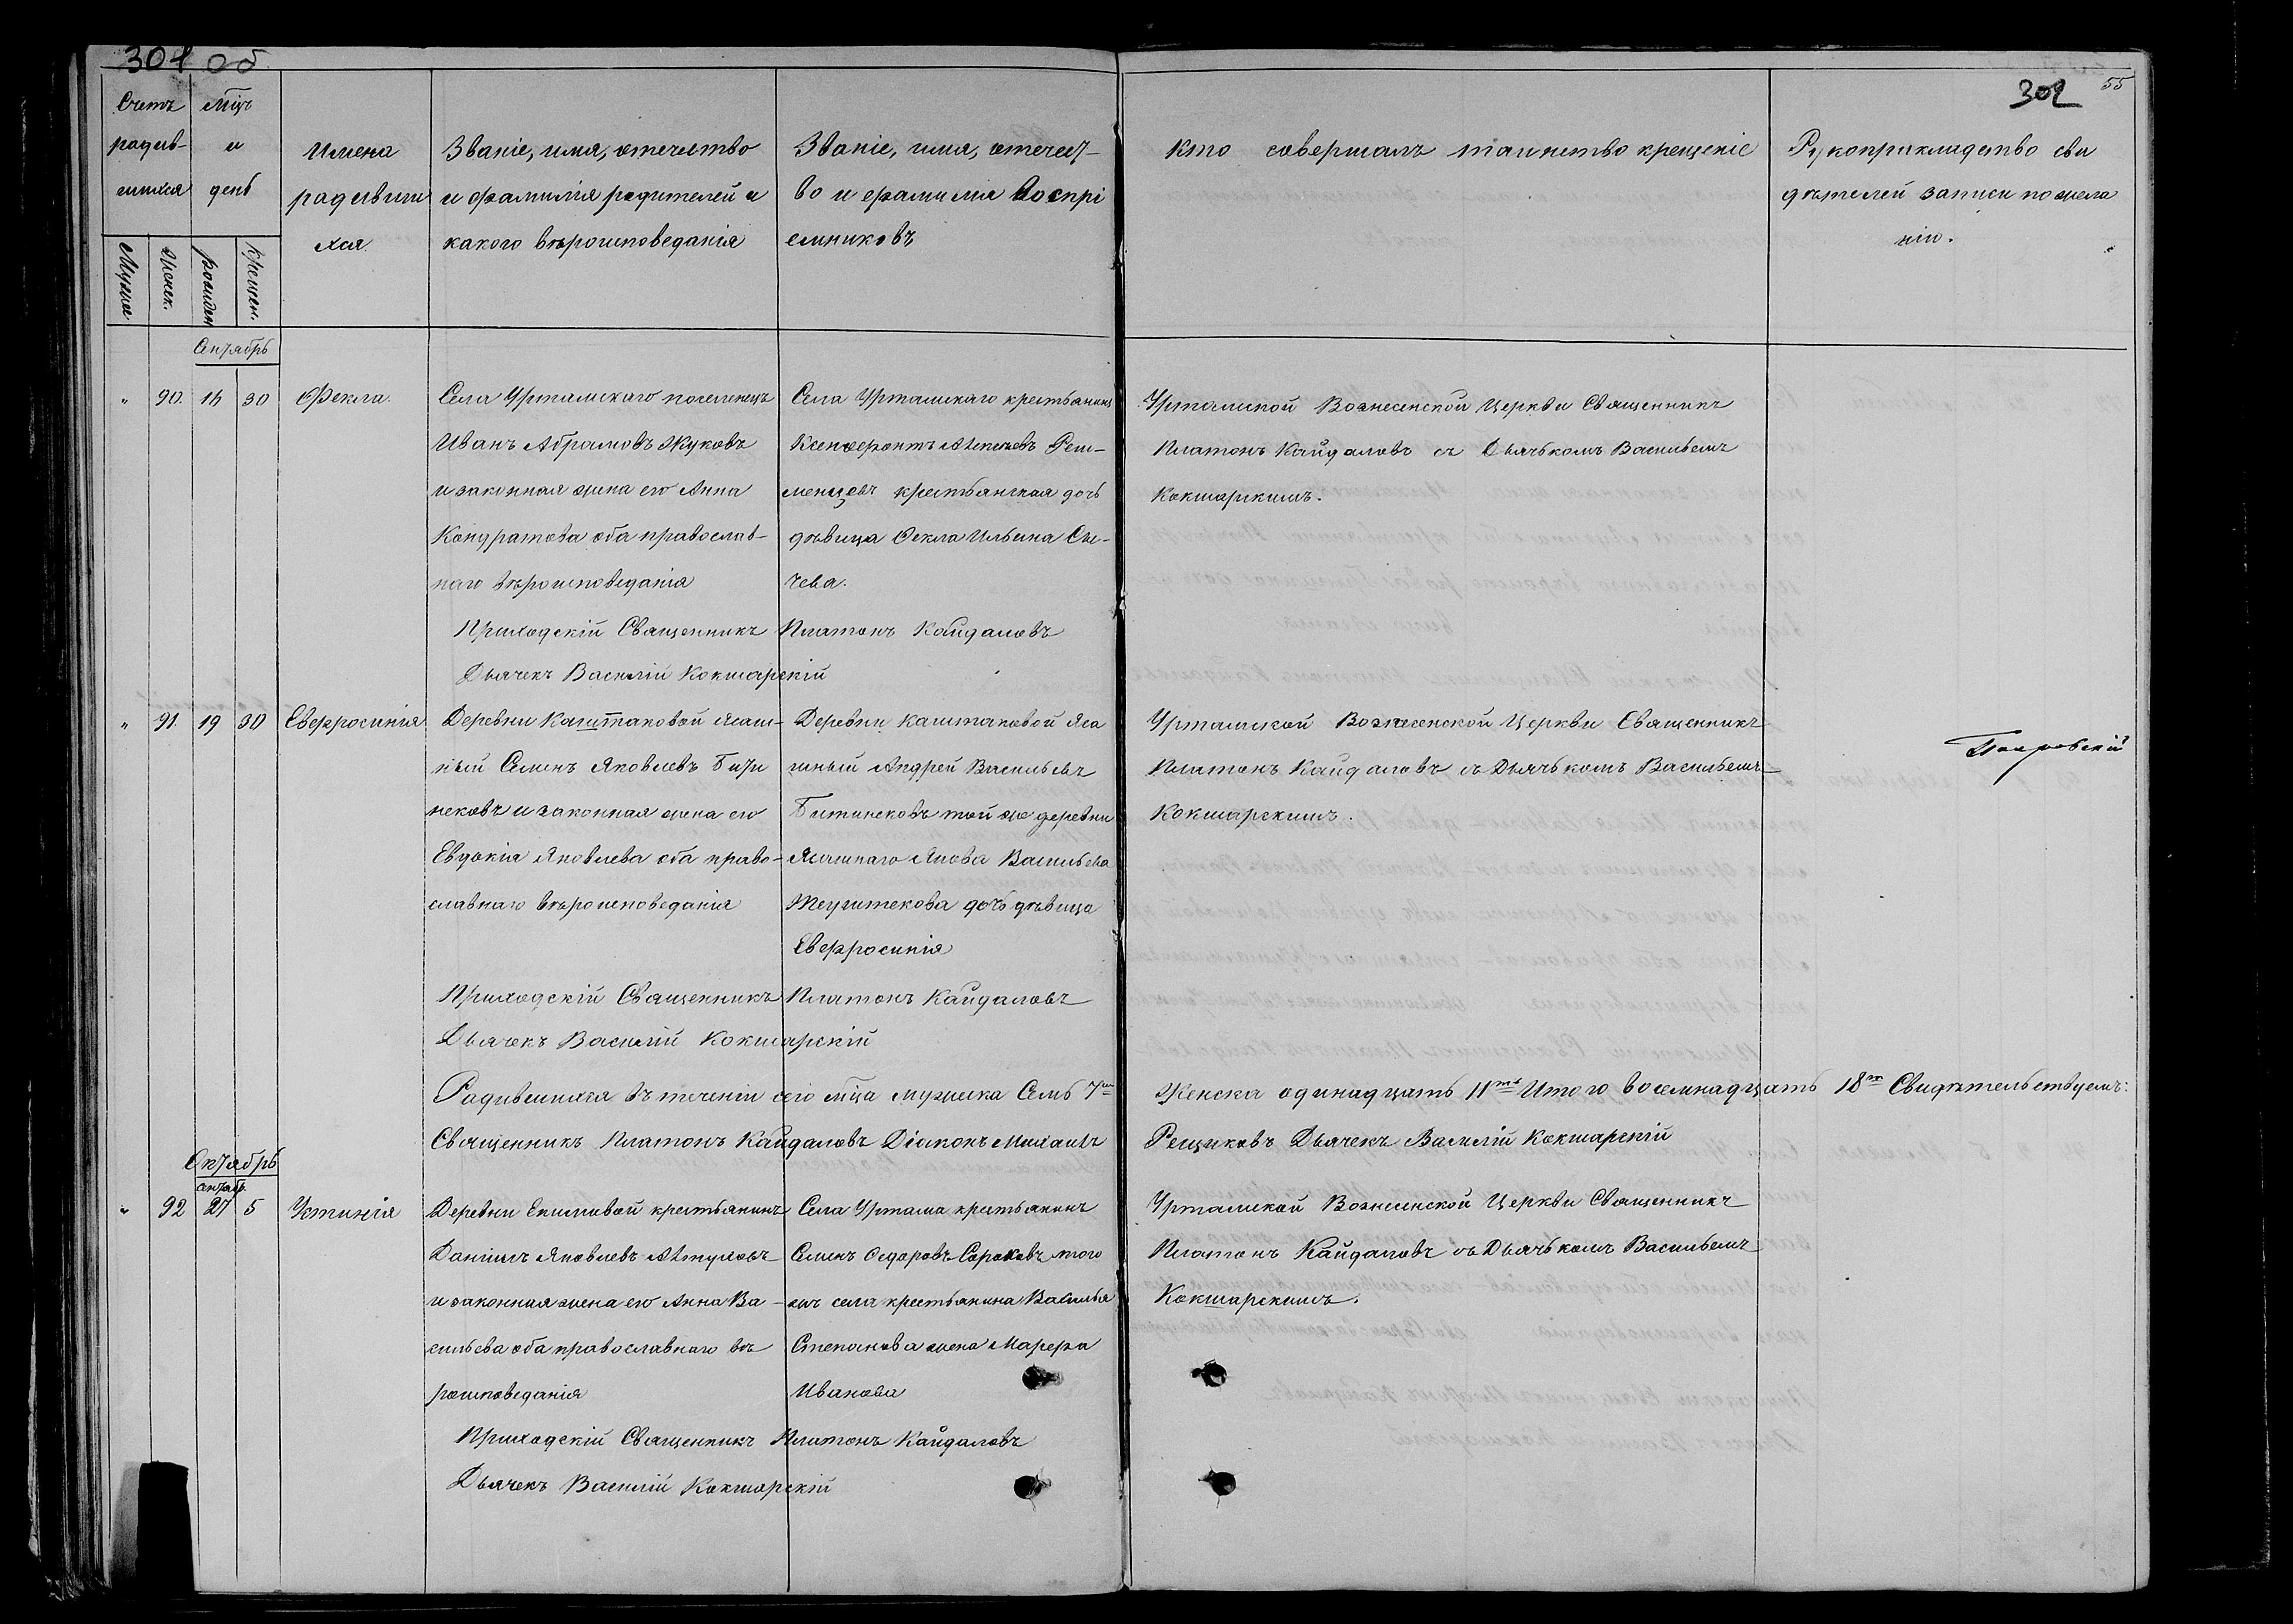 301 об
302 55
Счетъ родив-шихся
Мцъ и день
Имена родившихся
Званіе, имя, отечество и фамилія родителей и какого вѣроисповеданія
Званіе, имя, отечест-во и фамилія воспріемниковъ
Кто совершалъ таинство крещеніе
Рукоприкладство свидѣтелей записи по желанію.
Мужск.
Женск.
рожден
крещен.
Сентябрь
" 90. 30 Фекла.
Села Уртамскаго поселенецъ
Иванъ Абрамовъ Жуковъ
и законная жена его Анна
Кондратова оба православ-
наго вѣроисповеданія
Села Уртамскаго крестьянинъ
Ксенофонтъ Алексѣевъ
крестьянская дочь
дѣвица Фекла Ильина Сы-
чева.
Уртамской Вознесенской Церкви Священникъ
Платонъ Кайдаловъ съ Дьячькомъ Васильемъ
Кокшарскимъ.
Приходскій Священникъ Платонъ Кайдаловъ
Дьячекъ Василій Кокшарскій
" 91. 19 30 Евфросинія
Деревни Каштаковой Ясаш-
ный Семенъ Яковлевъ Бити
нековъ и законная жена его
Евдокія Яковлева оба право-
славнаго вѣроисповеданія
Деревни Каштаковой Яса
шный Андрей Васильевъ
Битинековъ той же деревни
Ясашнаго Якова Васильева
дочь дѣвица
Евфросинія
Уртамской Вознесенской Церкви Священникъ
Платонъ Кайдаловъ съ Дьячькомъ Васильемъ
Кокшарскимъ.
Приходскій Священникъ Платонъ Кайдаловъ
Дьячекъ Василій Кокшарскій
Родившихся въ теченіи сего мца мужеска Семь 7м Женска одинадцать 11ть Итого восемнадцать 18ть Свидѣтельствуемъ:
Священникъ Платонъ Кайдаловъ Діаконъ Михаилъ Рещиковъ Дьячекъ Василій Кокшарскій
Октябрь
Сентябр.
" 92 27 5 Устинія
Деревни Екимовой крестьянинъ
Даніилъ Яковлевъ
и законная жена его Анна Ва-
сильева оба православнаго вѣ
роисповеданія
Села Уртама крестьянинъ
Семенъ Федоровъ Сороковъ того
жъ села крестьянина Василья
Степанова жена Марфа
Иванова
Уртамской Вознесенской Церкви Священникъ
Платонъ Кайдаловъ съ Дьячькомъ Васильемъ
Кокшарскимъ.
Приходскій Священникъ Платонъ Кайдаловъ
Дьячекъ Василій Кокшарскій